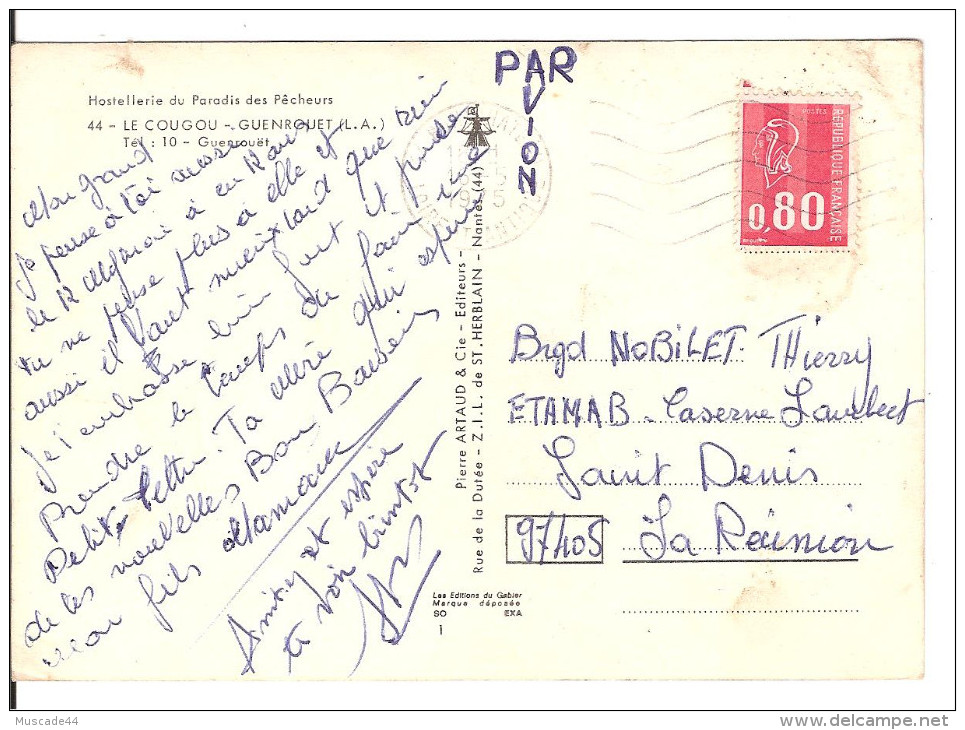 Hostellerie du Paradis des Pêcheurs
44 - LE COUGOU - GUENROUET (L.A.)
Tél : 10 - Guenrouët
Mon grand
je pense a toi aussi
le 12 a 12 ans
tu ne pense plus à elle et
aussi il vaut mieux que rien
Je t'embrasse bien fort et puisse
Prendre le temps de faire une
Petite lettre. Ta mère qui espère
de tes nouvelles Bon Baisers
mon fils Maman
Amitiés et espère
te voir bientot
PAR
AVION
Pierre ARTAUD & Cie - Editeurs -
Rue de la Dutée - Z.I.L. de ST. HERBLAIN - Nantes (44)
POSTES
REPUBLIQUE FRANÇAISE
0,80
Brgd NOBILET THierry
ETAMAB - Caserne Lambert
Saint Denis
97405 La Réunion
Les Editions du Gabier
Marque déposée
SO EXA
1
Muscade44
http://www.delcampe.net